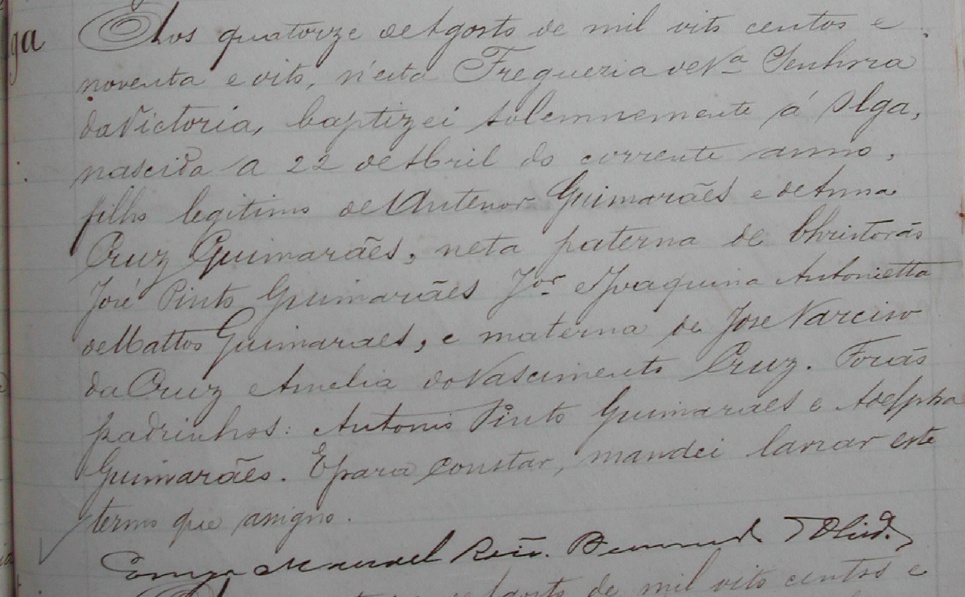 ga
Aos quatorze de Agosto de mil oito centos e
noventa e oito, n'esta Freguezia de Nª Senhora
da Victoria, baptizei solemnemente á Olga,
nascida a 22 de Abril do corrente anno,
filha legitima de Antenor Guimarães e de Anna
Cruz Guimarães, neta paterna de Christovão
José Pinto Guimarães Jor e Joaquina Antonietta
de Mattos Guimarães, e materna de José Narciso
da Cruz e Amelia do Nascimento Cruz. Forão
padrinhos: Antonio Pinto Guimarães e Adelpha
Guimarães. E para constar, mandei lavrar este
termo que assigno.
Conego Manoel
de mil oito centos e